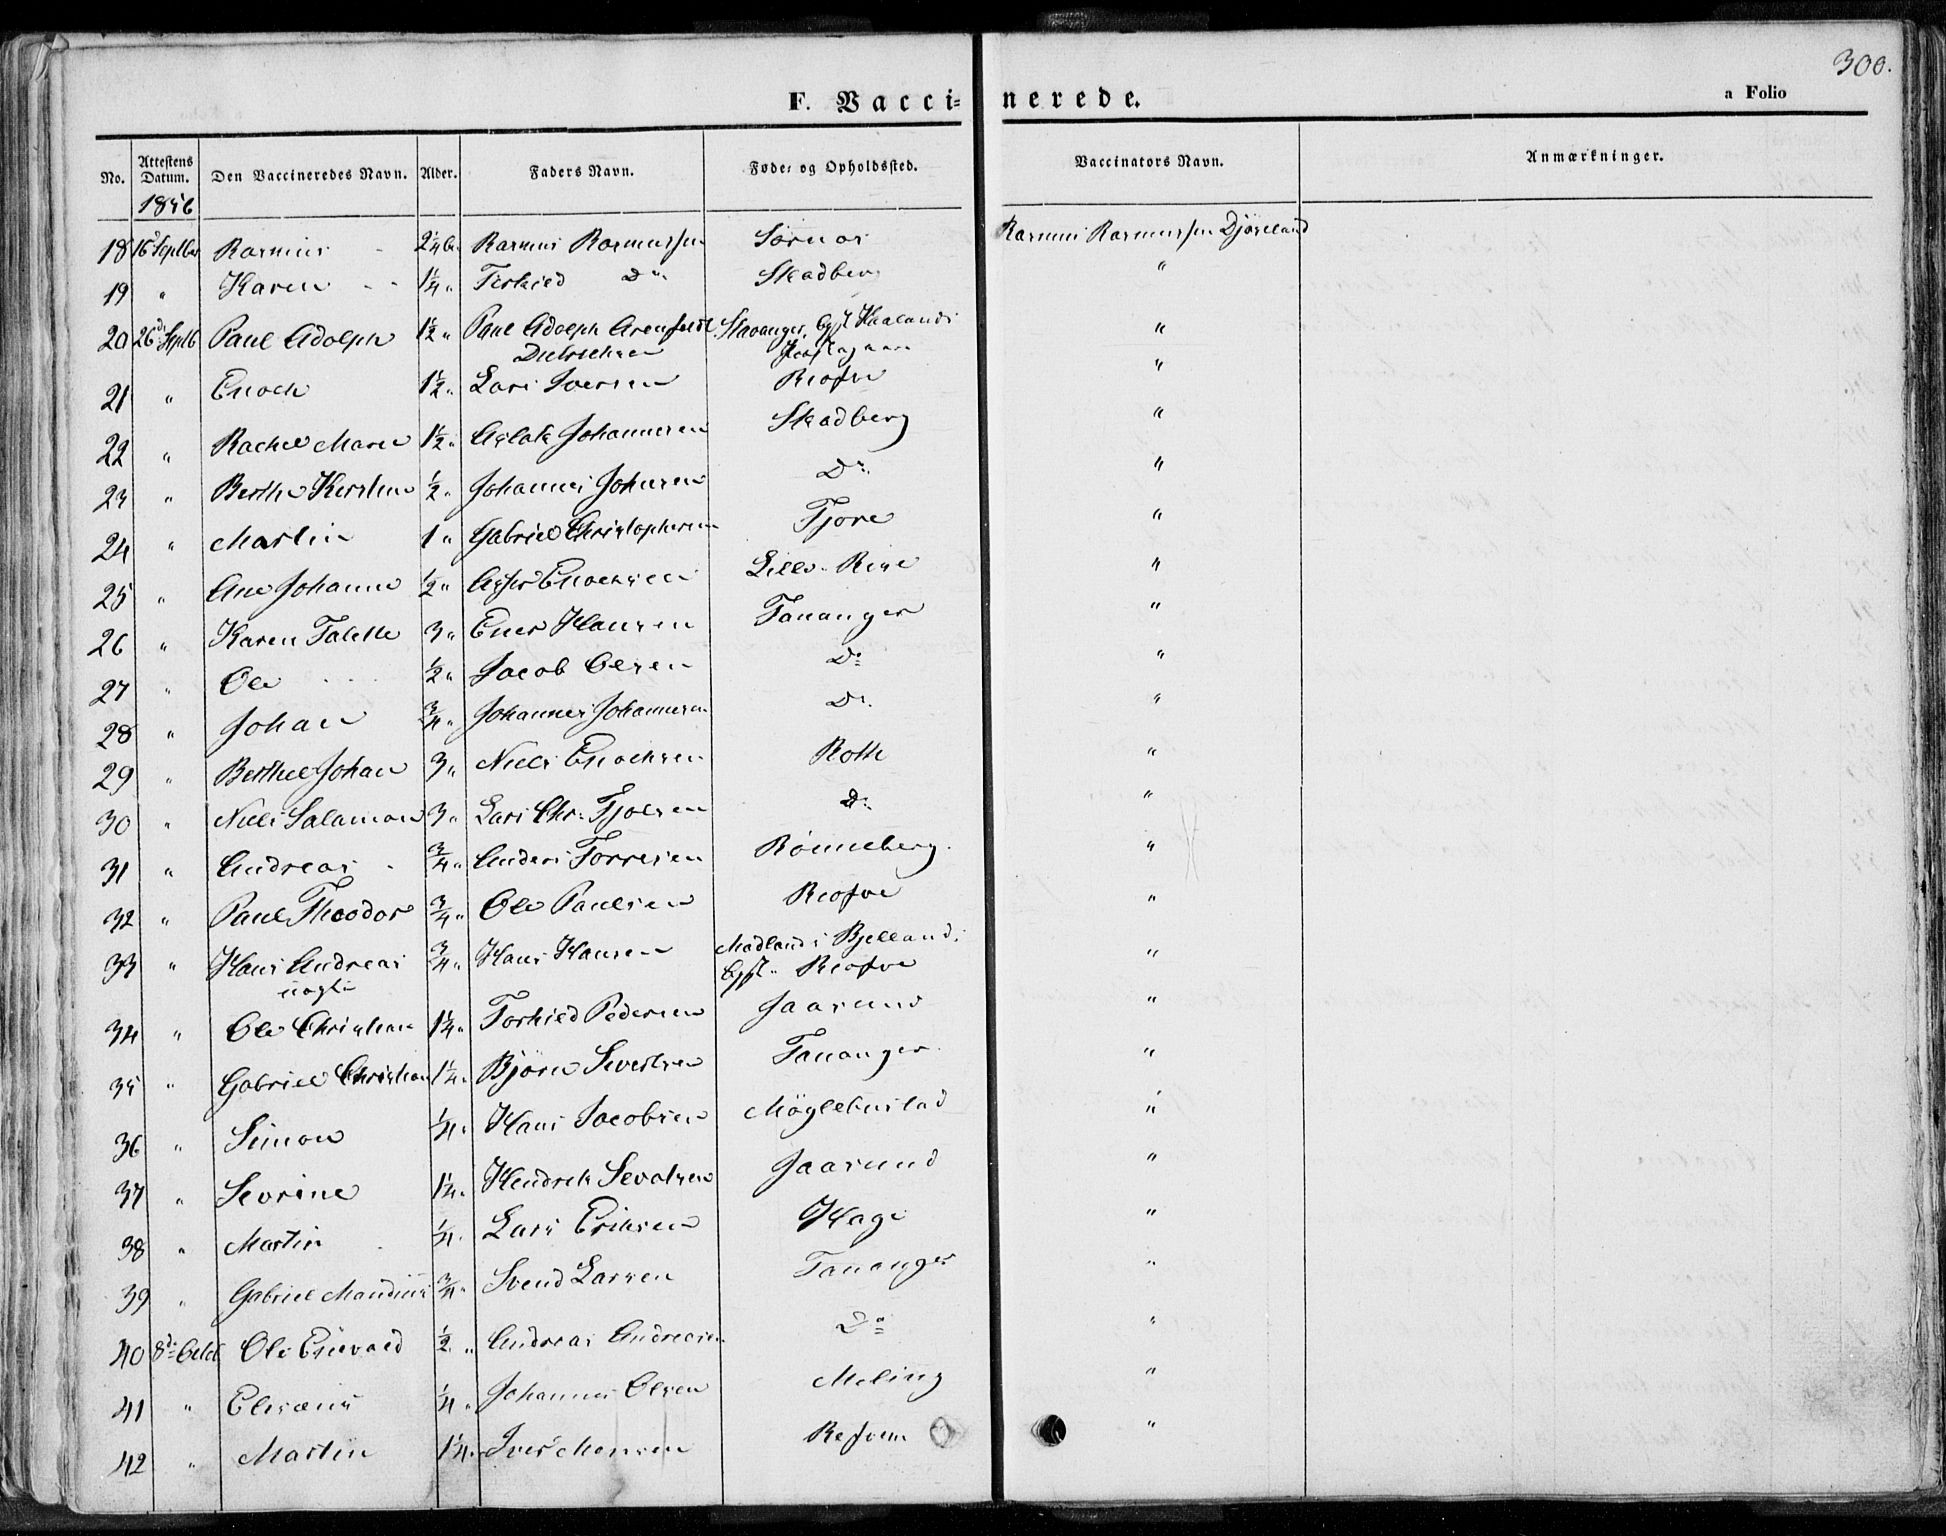 300.
F. Vaccinerede. a Folio
No. Attestens Datum. Den Vaccineredes Navn. Alder. Faders Navn. Føde- og Opholdssted. Vaccinators Navn. Anmærkninger.
1856
18 16 Septbr Rasmus 2¼ Rasmus Rasmussen Sørnes Rasmus Rasmussen
19 " Karen 1¼ " Torkild Do Skadberg "
20 26d Septb Paul Adolph 1½ " Paul Adolph Stavanger "
21 " Enoch 1½ " Lars Iversen "
22 " Rachel Marie 1½ " Aslak Johannesen Skadberg "
23 " Berthe Kirstine ½ " Johannes Johnsen Do "
24 " Martin 1 " Gabriel Christophersen Tjore "
25 " Ane Johanne ½ " Enochsen Lille Risa "
26 " Karen Talette 3 " Hansen Tananger "
27 " Ole ½ " Jacob Olsen Do "
28 " Johan ¾ " Johannes Johannesen Do "
29 " Berthel Johan 3 " Niels Enochsen Roth "
30 " Niels Salamon 3 " Lars Chr. Do "
31 " Andreas ¾ " Anders Torresen Rönneberg "
32 " Paul Theodor ¾ " Ole Paulsen "
33 " Hans Andreas ¾ " Hans Hansen Madland i Bjelland "
uægte
34 " Ole Christian 1¼ " Torkild Pedersen Jaasund "
35 " Gabriel Christian 1¼ " Björn Sivertsen Tananger "
36 " Simon ¼ " Hans Jacobsen Möglebustad "
37 " Sevrine 1¼ " Hendrik Jaasund "
38 " Martin ¼ " Lars Eriksen Haga "
39 " Gabriel Mandius ¾ " Svend Larsen Tananger "
40 8d Octob Ole Enevald ½ " Andreas Andreasen Do "
41 " Elisæus ¼ " Johannes Olsen Meling "
42 " Martin 1¼ " Iver Monsen "